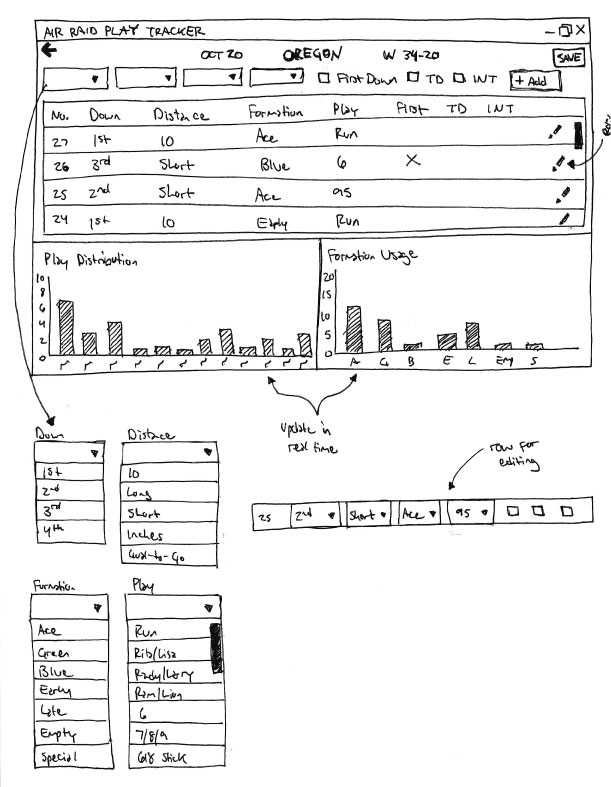 AIR RAID PLAY TRACKER
OCT 20 OREGON W 34-20 SAVE
First Down TD INT + Add
No. Down Distance Formation Play First TD INT
27 1st 10 Ace Run
26 3rd Short Blue 6 X
25 2nd Short Ace 95
24 1st 10 Empty Run
Play Distribution
10
8
6
4
2
0
Formation Usage
20
15
10
5
0
A G B E L EM S
update in
real time
Down
1st
2nd
3rd
4th
Distance
10
Long
Short
Inches
Goal-to-Go
row for
editing
25 2nd Short Ace 95
Formation
Ace
Green
Blue
Early
Late
Empty
Special
Play
Run
Rib/Lisa
Randy/Larry
Ram/Lion
6
7/8/9
618 Stick